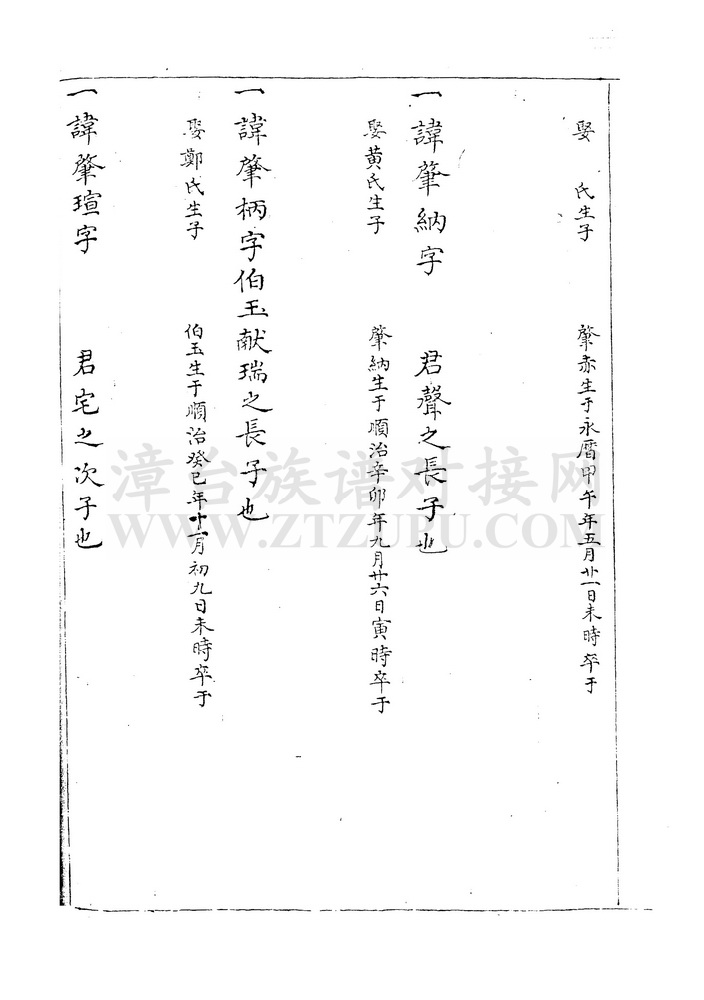 娶　氏生子　肇赤生于永曆甲午年五月廿一日未時卒于
一諱肇納字　君聲之長子也
娶黄氏生子　肇納生于順治辛卯年九月廿六日寅時卒于
一諱肇柄字伯玉献瑞之長子也
娶鄭氏生子　伯玉生于順治癸巳年十一月初九日未時卒于
一諱肇瑄字　君宅之次子也
漳台族谱对接网
WWW.ZTZUPU.COM